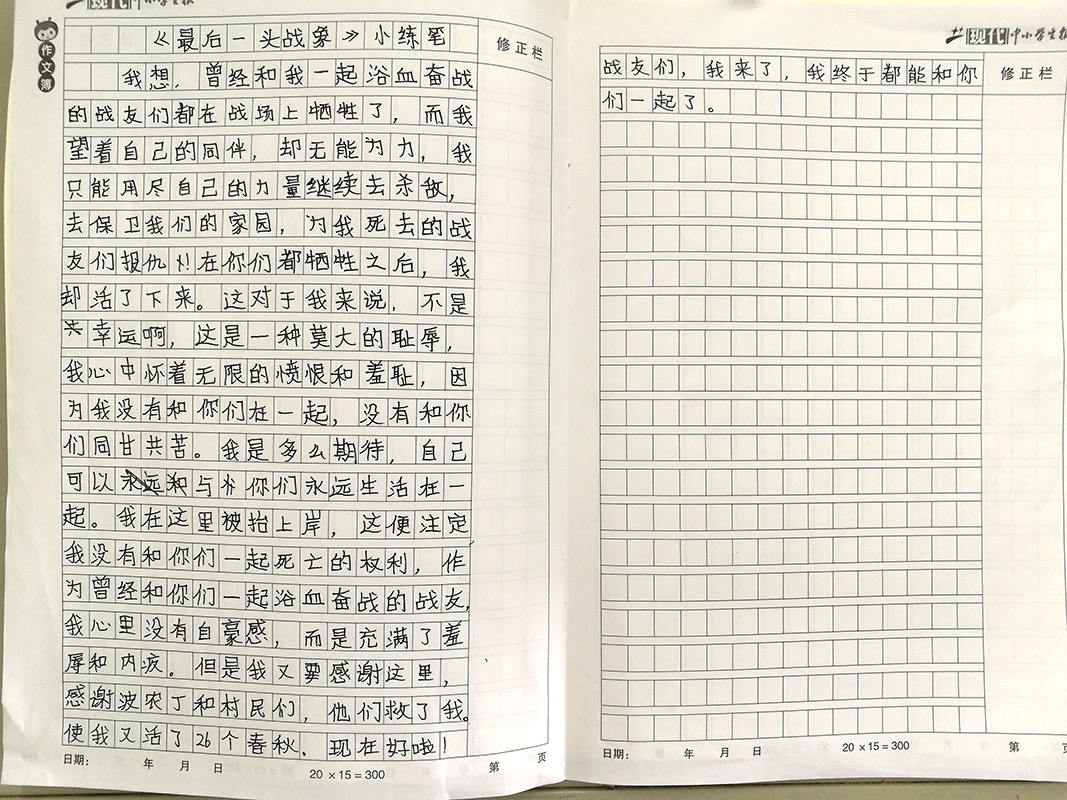 现代中小学生报
作文簿
《最后一头战象》小练笔
修正栏
我想，曾经和我一起浴血奋战
的战友们都在战场上牺牲了，而我
望着自己的同伴，却无能为力，我
只能用尽自己的力量继续去杀敌，
去保卫我们的家园，为我死去的战
友们报仇!!在你们都牺牲之后，我
却活了下来。这对于我来说，不是
幸运啊，这是一种莫大的耻辱，
我心中怀着无限的愤恨和羞耻，因
为我没有和你们在一起，没有和你
们同甘共苦。我是多么期待，自己
可以永远和与你们永远生活在一
起。我在这里被抬上岸，这便注定
我没有和你们一起死亡的权利，作
为曾经和你们一起浴血奋战的战友，
我心里没有自豪感，而是充满了羞
辱和内疚。但是我又要感谢这里，
感谢波农丁和村民们，他们救了我。
使我又活了26个春秋、现在好啦！
日期： 年 月 日
20×15=300
第 页
现代中小学生报
修正栏
战友们，我来了，我终于都能和你
们一起了。
日期： 年 月 日
20×15=300
第 页